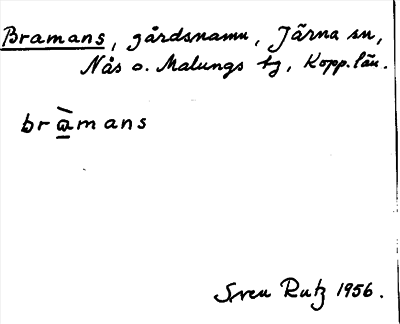 Bramans, gårdsnamn, Järna sn,
Nås o. Malungs tg, Kopp. län.
bràmans
Sven Rutz 1956.